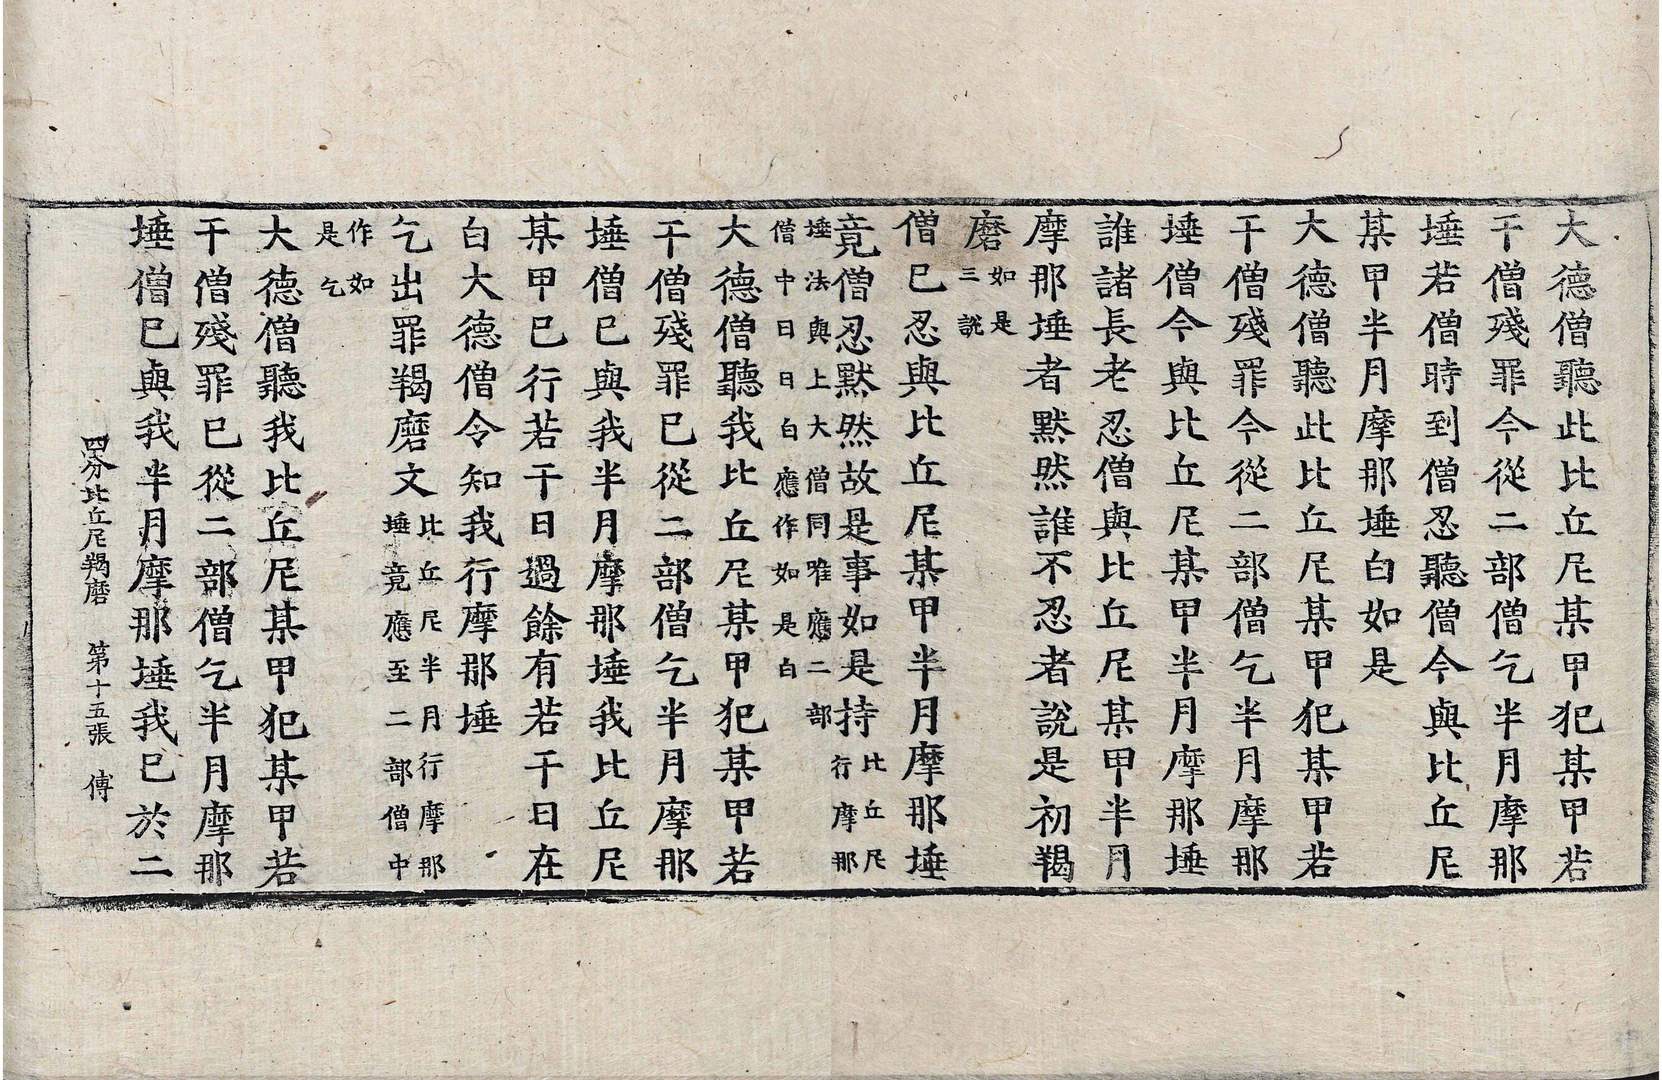 大德僧聽此比丘尼某甲犯某甲若
干僧殘罪今從二部僧乞半月摩那
埵若僧時到僧忍聽僧今與比丘尼
某甲半月摩那埵白如是
大德僧聽此比丘尼某甲犯某甲若
干僧殘罪今從二部僧乞半月摩那
埵僧今與比丘尼某甲半月摩那埵
誰諸長老忍僧與比丘尼某甲半月
摩那埵者默然誰不忍者說是初羯
磨如是三說
僧已忍與比丘尼某甲半月摩那埵
竟僧忍默然故是事如是持比丘尼行摩那
埵法與上大僧同唯應二部僧中日日白應作如是白
大德僧聽我比丘尼某甲犯某甲若
干僧殘罪已從二部僧乞半月摩那
埵僧已與我半月摩那埵我比丘尼
某甲已行若干日過餘有若干日在
白大德僧令知我行摩那埵
乞出罪羯磨文比丘尼半月行摩那埵竟應至二部僧中
作如是乞
大德僧聽我比丘尼某甲犯某甲若
干僧殘罪已從二部僧乞半月摩那
埵僧已與我半月摩那埵我已於二
四分比丘尼羯磨 第十五張 傅